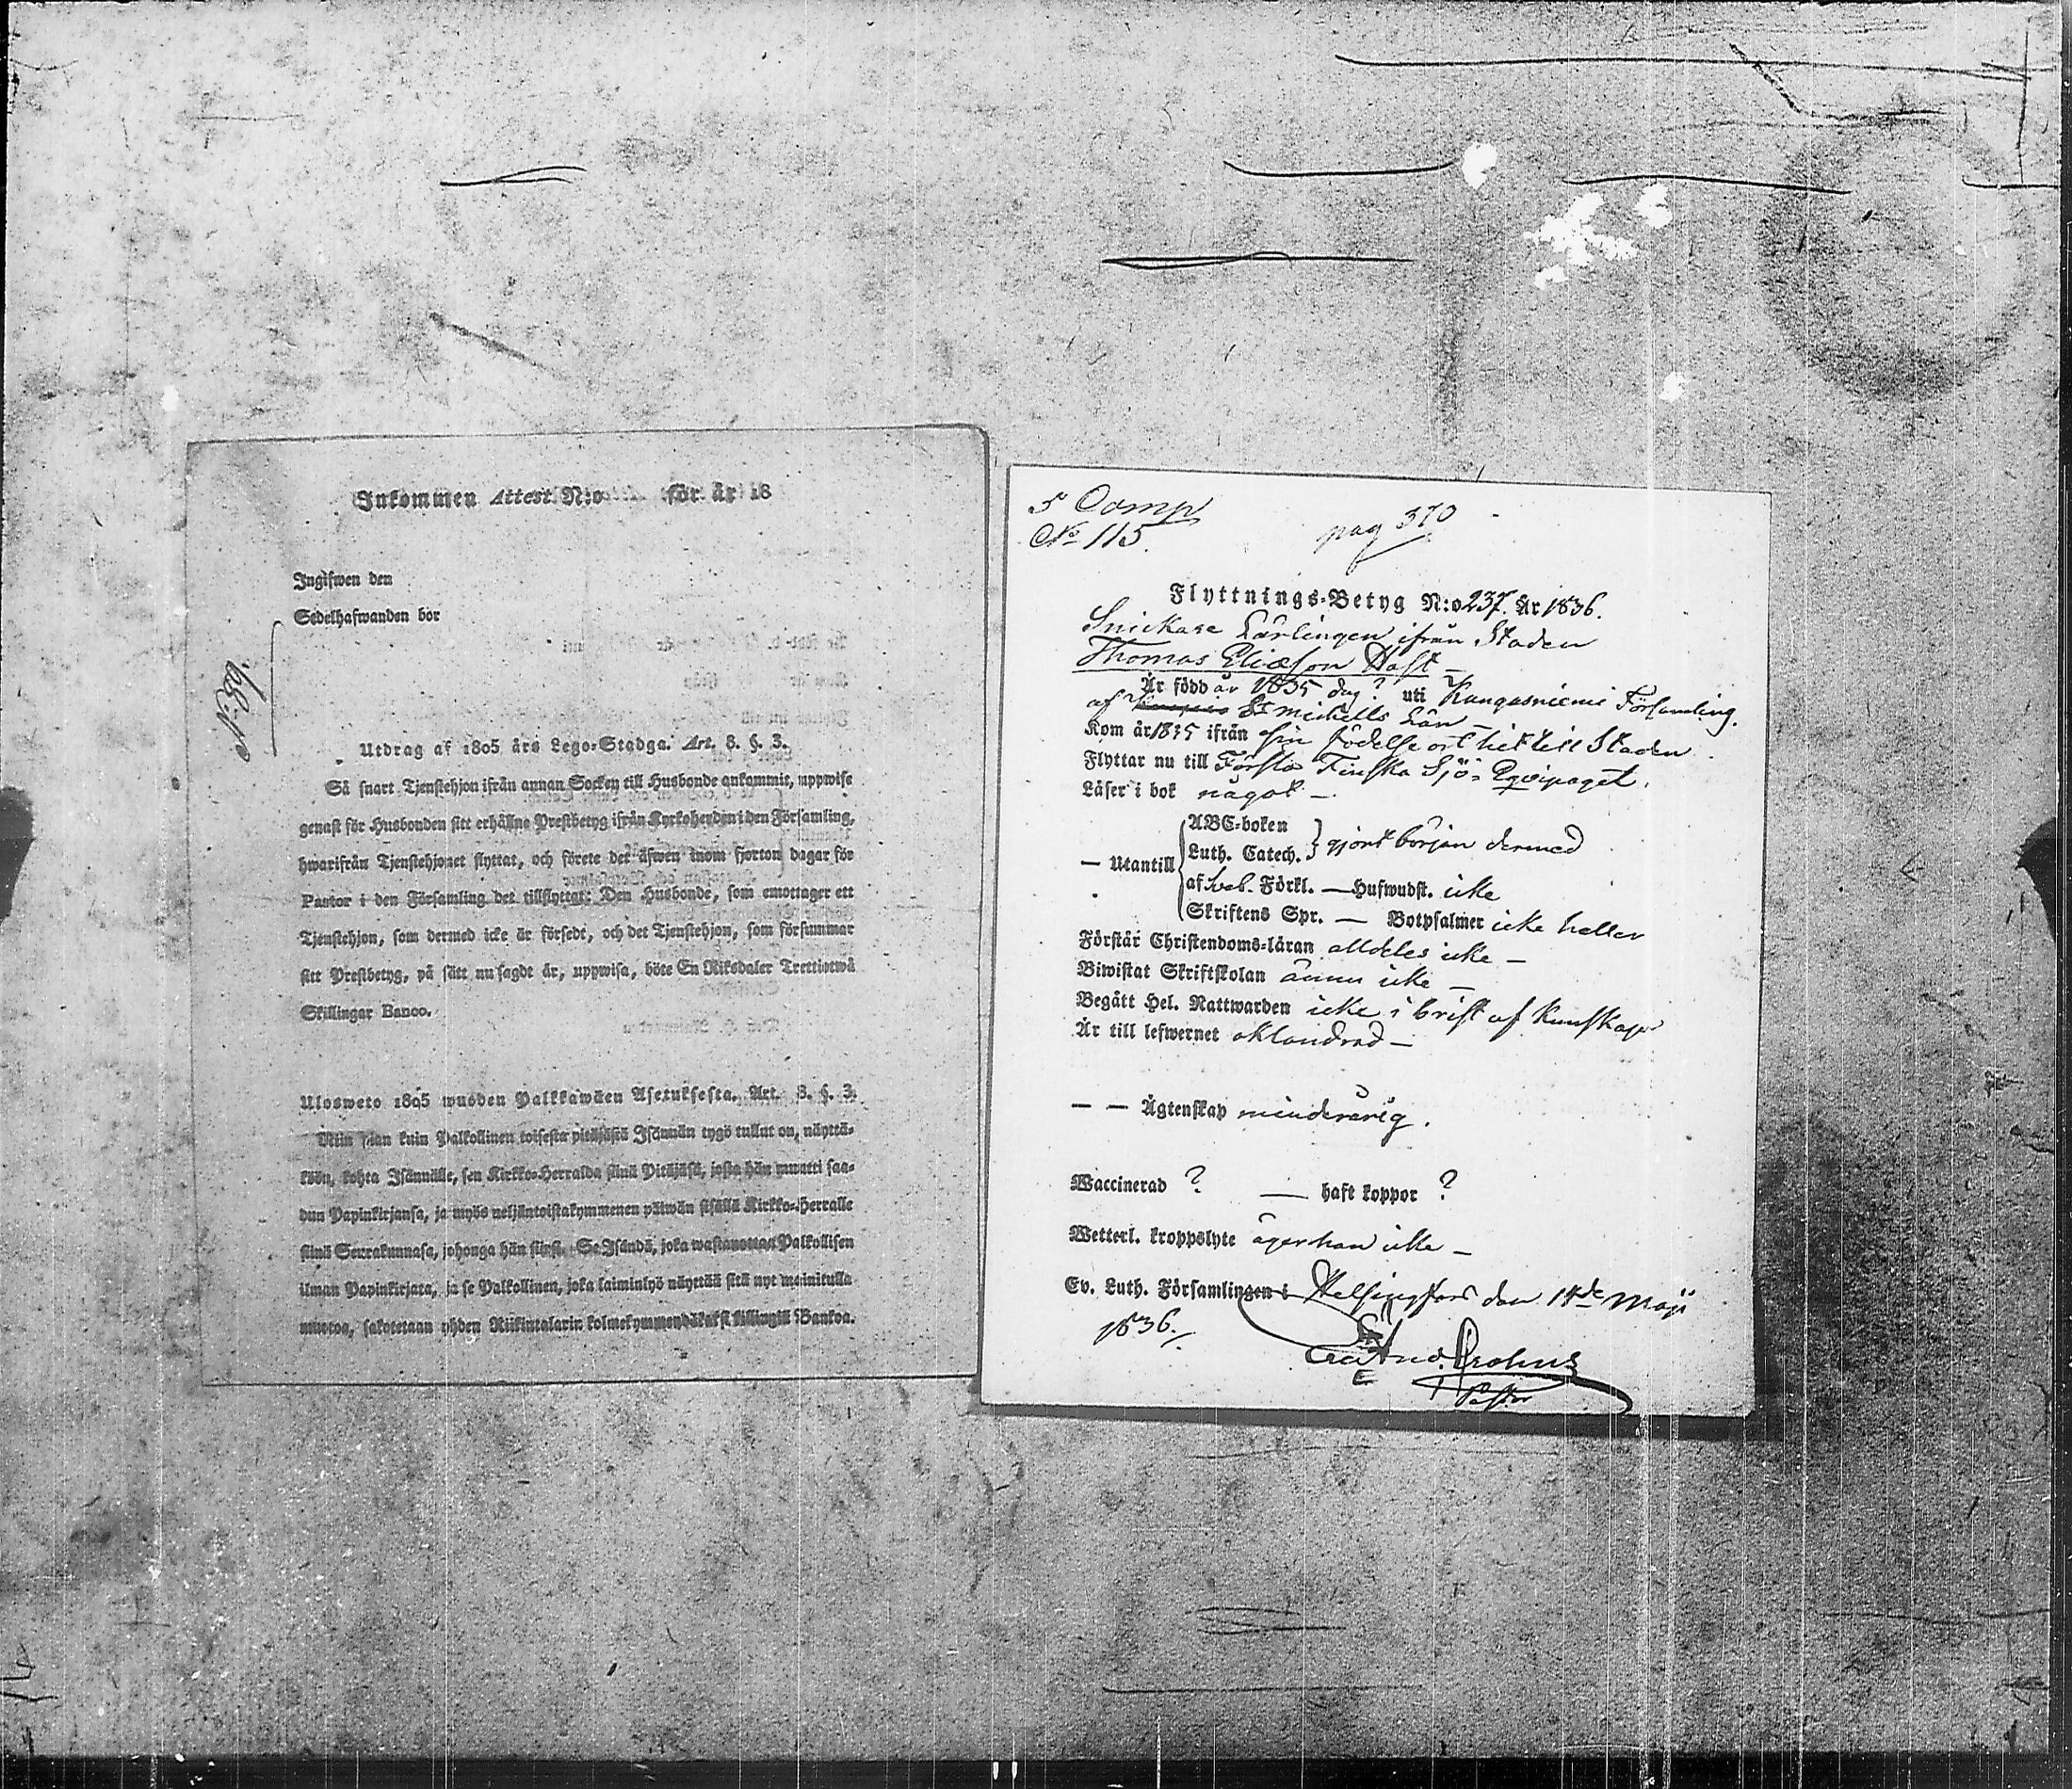 Inkommen Attest N:o för år 18
Ingifwen den
Sedelhafwanden bor
Utdrag af 1805 års Lego-Stadga. Art. 8. §. 3.
Så snart Tjenstehjon ifrån annan Socken till Husbonde ankommit, uppwise
genast för Husbonden sitt erhållne Prestbetyg ifrån Kyrkoherden i den Församling,
hwarifrån Tjenstehjonet flyttat, och förete det äfwen inom fjorton dagar för
Pastor i den Församling det tillflyttat: Den Husbonde, som emottager ett
Tjenstehjon, som dermed icke är försedt, och det Tjenstehjon, som försummar
sitt Prestbetyg, på sätt nu sagdt är, uppwisa, böte En Riksdaler Trettiotwå
Skillingar Banco.
Ulosweto 1805 wuoden Palkkawäen Asetuksesta. Art. 8. §. 3.
Niin pian kuin Palkollinen toisesta pitäjästä Isännän tygö tullut on, näyttä-
köön, kohta Isännälle, sen Kirkko-Herralda siinä Pitäjäsä, josta hän muutti saa-
dun Papinkirjansa, ja myös neljäntoistakymmenen päiwän sisällä Kirkko-Herralle
siinä Seurakunnasa, johonga hän siirsi. Se Isändä, joka wastanottaa Palkollisen
ilman Papinkirjata, ja se Palkollinen, joka laiminlyö näyttää sitä nyt mainitulla
muotoa, sakotetaan yhden Riikintalarin kolmekymmendäkaksi killingill Bankoa.
5 Comp
No 115.
pag 370
Flyttnings-Betyg N:o 237. År 1836.
Snickare Lärlingen ifrån Staden
Thomas Eliæson Hast
Är född år 1835 dag? uti Kangasniemi Församling.
af St Michells Län
Kom år 1835 ifrån sin födelse ort hit till Staden
Flyttar nu till Första Finska Sjö-Eqvipaget.
Läser i bok något
— Utantill
ABC-boken
Luth. Catech. } gjort början dermed
af Förkl. — Hufwudst. icke
Skriftens Spr. — Botpsalmer icke heller
Förstår Christendoms-läran alldeles icke —
Biwistat Skriftskolan ännu icke —
Begått Hel. Nattwarden icke i brist af Kunskaper
Är till lefwernet oklandrad —
— — Ägtenskap minderårig.
Waccinerad ? — haft koppor ?
Wetterl. kroppslyte äger han icke —
Ev. Luth. Församlingen i Helsingfors den Maji
1836.
Crohns
Pastor